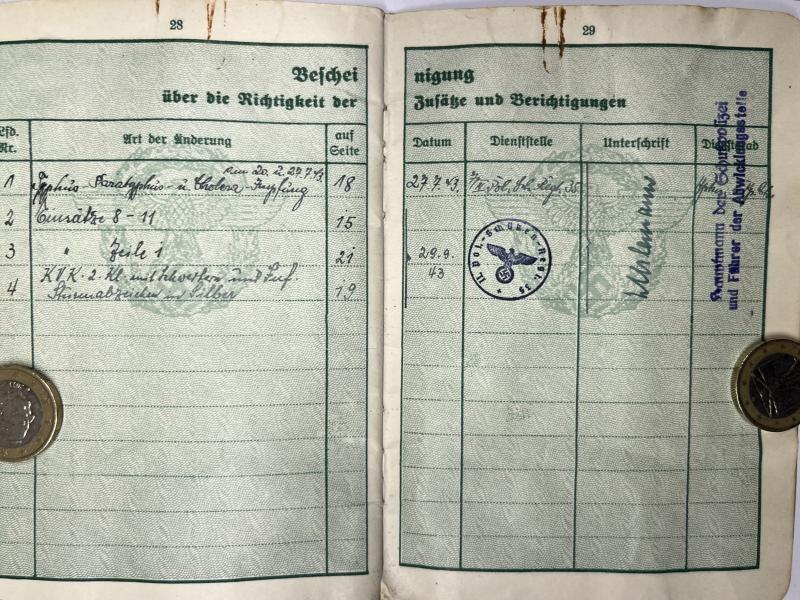 28
Beschei
über die Richtigkeit der
Lfd. Nr.
Art der Änderung
auf Seite
am 20. u. 27.7.43
1 Typhus Paratyphus u. Cholera-Impfung 18
2 Einsätze 8-11 15
3 " Zeile 1 21
4 K.V.K. 2. Kl. mit Schwertern und Inf.
Sturmabzeichen in Silber 19
29
nigung
Zusätze und Berichtigungen
Datum
Dienststelle
Unterschrift
Dienstgrad
27.7.43.
29.9.
43
II. Pol.-Schützen-Regt. 35
Hauptmann der Schutzpolizei
und Führer der Abwicklungsstelle